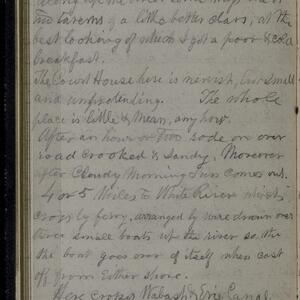 along up the river some way
and taverns of a little better class, at the
best looking of which I got a poor & cold
breakfast.
The Court House here is newest, but small
and unpretending. The whole
place is little & mean, any how.
After an hour or two rode on over
road crooked & Sandy, Moreover
after Cloudy Morning Sun comes out.
4 or 5 Miles to White River which
cross by ferry, arranged by wire drawn over
three small boats up the river so the
the boat goes over of itself when cast
off from Either shore.
Here crosses Wabash & Erie Canal